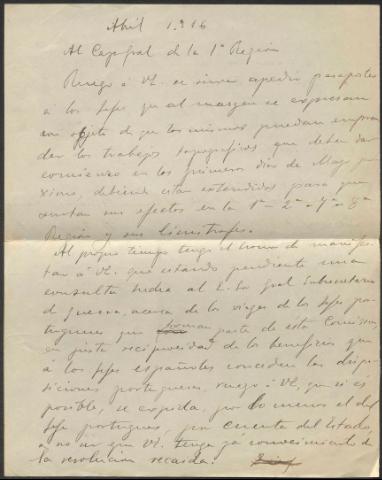 Abril 1916
Al Cap Gral de la 1ª Región
Ruego á VE. se sirva expedir pasaportes
á los Jefes que al margen se expresan
con objeto de que los mismos puedan empren
der los trabajos topograficos que deben dar
comienzo en los primeros dias de Mayo pro
ximo, debiendo estar estendidos para que
surtan sus efectos en la 1ª - 2ª - 7ª y 8ª
Región y sus limitrofes.
Al propio tiempo tengo el honor de manifes-
tar á VE. que estando pendiente una
consulta hecha al E. Sr Gral Subsecretario
de Guerra, acerca de los viages de los Jefes por
tugueses que forman parte de esta Comision,
en justa reciprocidad de los beneficios que
á los Jefes españoles conceden las dispo
siciones portuguesas, ruego á VE, que si es
posible, se expida, por lo menos el del
Jefe portugues, por cuenta del Estado,
a no ser que VE. tenga ya conocimiento de
la resolucion recaida.